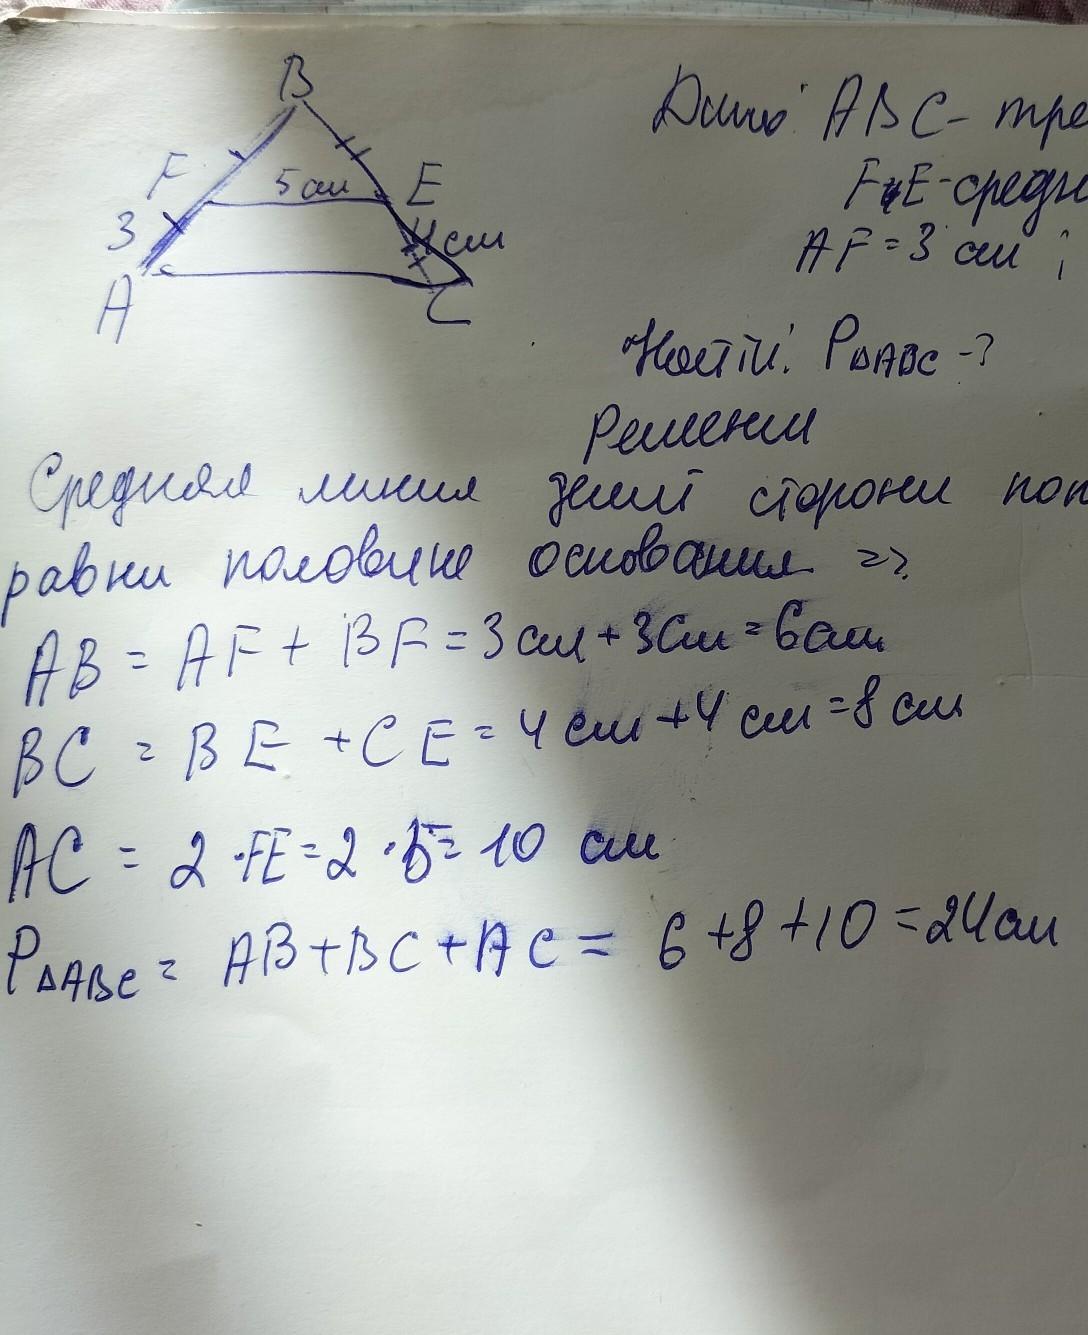 B
F 5 см E
3 4 см
A C
Дано: ABC - тре
FE - средн
AF = 3 см ;
Найти: P∆ABC - ?
Решени
Средняя линия делит сторони поп
равни половине основания =>
AB = AF + BF = 3 см + 3 см = 6 см
BC = BE + CE = 4 см + 4 см = 8 см
AC = 2 · FE = 2 · 5 = 10 см
P∆ABC = AB + BC + AC = 6 + 8 + 10 = 24 см